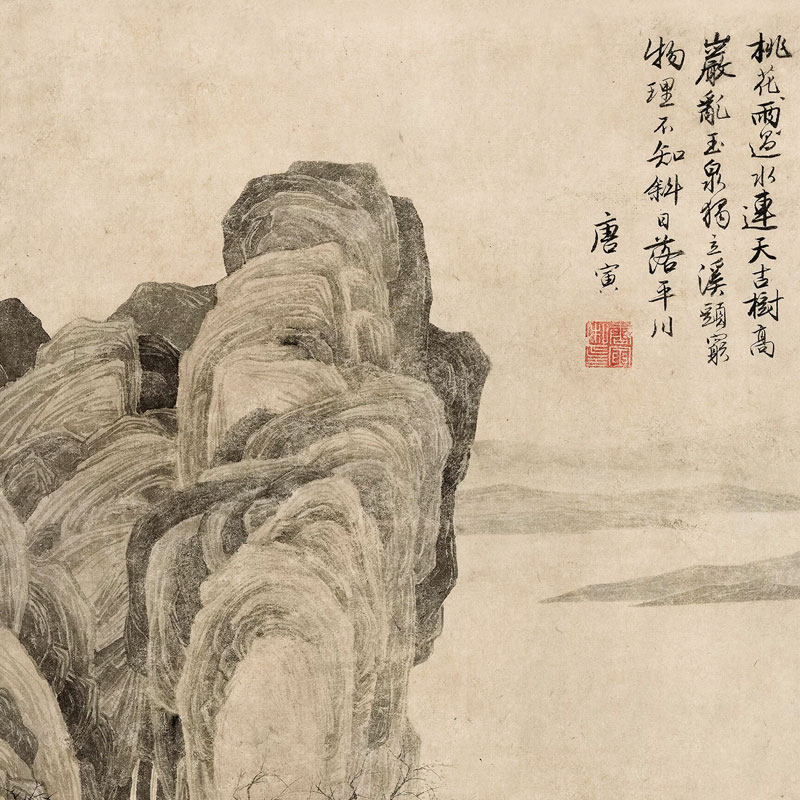 桃花雨過水連天古樹高
巖亂玉泉獨立溪頭窮
物理不知斜日落平川
唐寅